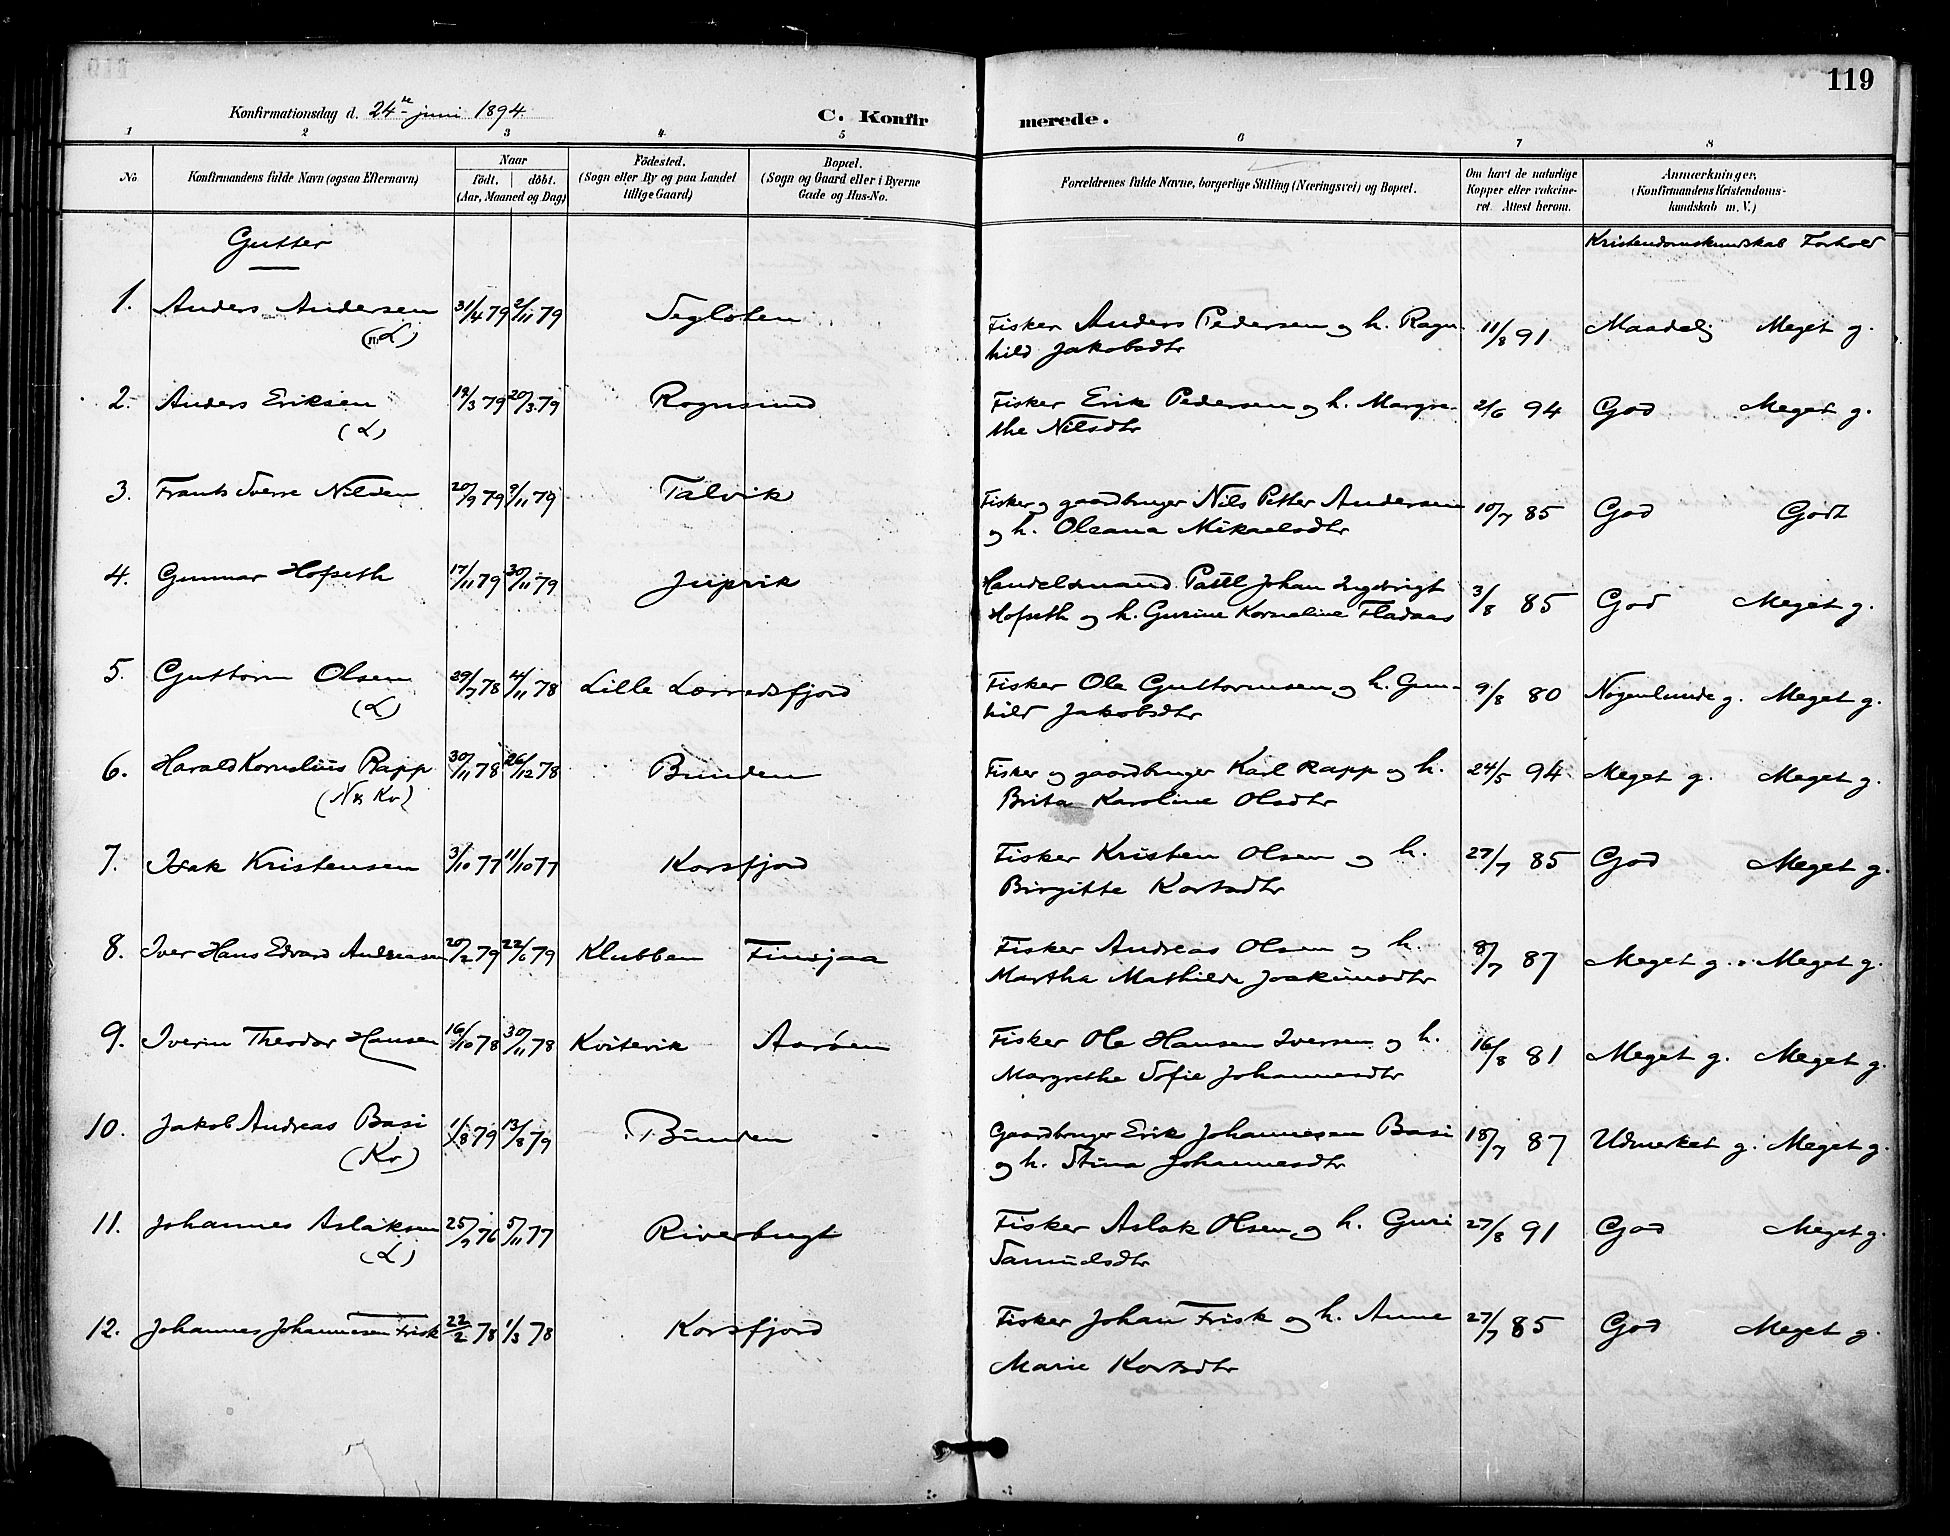 119
Konfirmationsdag d. 24de juni 1894.
C. Konfirmerede.
1 2 3 4. 5 6 7 8
No
Konfirmandens fulde Navn (ogsaa Efternavn)
Naar
födt. | döbt.
(Aar, Maaned og Dag)
Födested.
(Sogn eller By og paa Landet
tillige Gaard)
Bopæl.
(Sogn og Gaard eller i Byerne
Gade og Hus-No.
Forældrenes fulde Navne, borgerlige Stilling (Næringsvei) og Bopæl.
Om havt de naturlige
Kopper eller vakcineret. Attest herom.
Anmærkninger,
(Konfirmandens Kristendomskundskab m. V.)
Gutter
Kristendomskundskab Forhold
1. Anders Andersen 31/4 79 2/11 79 Fisker Anders Pedersen og h. Ragn- 11/8 91 Maadelig Meget g.
hild Jakobsdtr
2. Anders Eriksen 19/3 79 20/3 79 Rognsund Fisker Erik Pedersen og h. Margre- 2/6 94 God Meget g.
(L) the Nilsdtr
3. Frants Sverre Nilsen 20/9 79 9/11 79 Talvik Fisker og gaardbruger Nils Petter Andersen 10/7 85 God Godt
og h. Oleana Mikaelsdtr
4. Gunnar Hofseth 17/11 79 30/11 79 Jupvik Handelsmand Johan Ingebrigt 3/8 85 God Meget g.
Hofseth og h. Gurine Korneline Fladaas
5. Guttorm Olsen 29/7 78 4/11 78 Lille Lerredsfjord Fisker Ole Guttormsen og h. Gun- 9/8 80 Nogenlunde g. Meget g.
(L) hild Jakobsdtr
6. Harald Kornelius Rapp 30/11 78 26/12 78 Bunden Fisker og gaardbruger Karl Rapp og h. 24/5 94 Meget g. Meget g.
(N & Kv) Brita Karoline Olsdtr
7. Isak Kristensen 3/10 77 11/10 77 Korsfjord Fisker Kristen Olsen og h. 27/7 85 God Meget g.
Birgitte Kortsdtr
8. Iver Hans Edvard Andreasen 20/2 79 22/6 79 Klubben Finsjaa Fisker Andreas Olsen og h. 8/7 87 Meget g. Meget g.
Martha Mathilde Joakimsdtr
9. Iverin Theodor Hansen 16/10 78 30/11 78 Kvitevik Aarøen Fisker Ole Hansen Iversen og h. 16/8 81 Meget g. Meget g.
Margrethe Sofie Johannesdtr
10. Jakob Andreas Basi 1/8 79 13/8 79 Bunden Gaardbruger Erik Johannesen Basi 18/7 87 Udmerket g. Meget g.
(Kv) og h. Stina Johannesdtr
11. Johannes Aslaksen 25/7 76 5/11 77 Riverbugt Fisker Aslak Olsen og h. Guri 27/8 91 God Meget g.
(L) Samuelsdtr
12. Johannes Johannesen Frisk 22/2 78 1/3 78 Korsfjord Fisker Johan Frisk og h. Anne 27/7 85 God Meget g.
Marie Kortsdtr